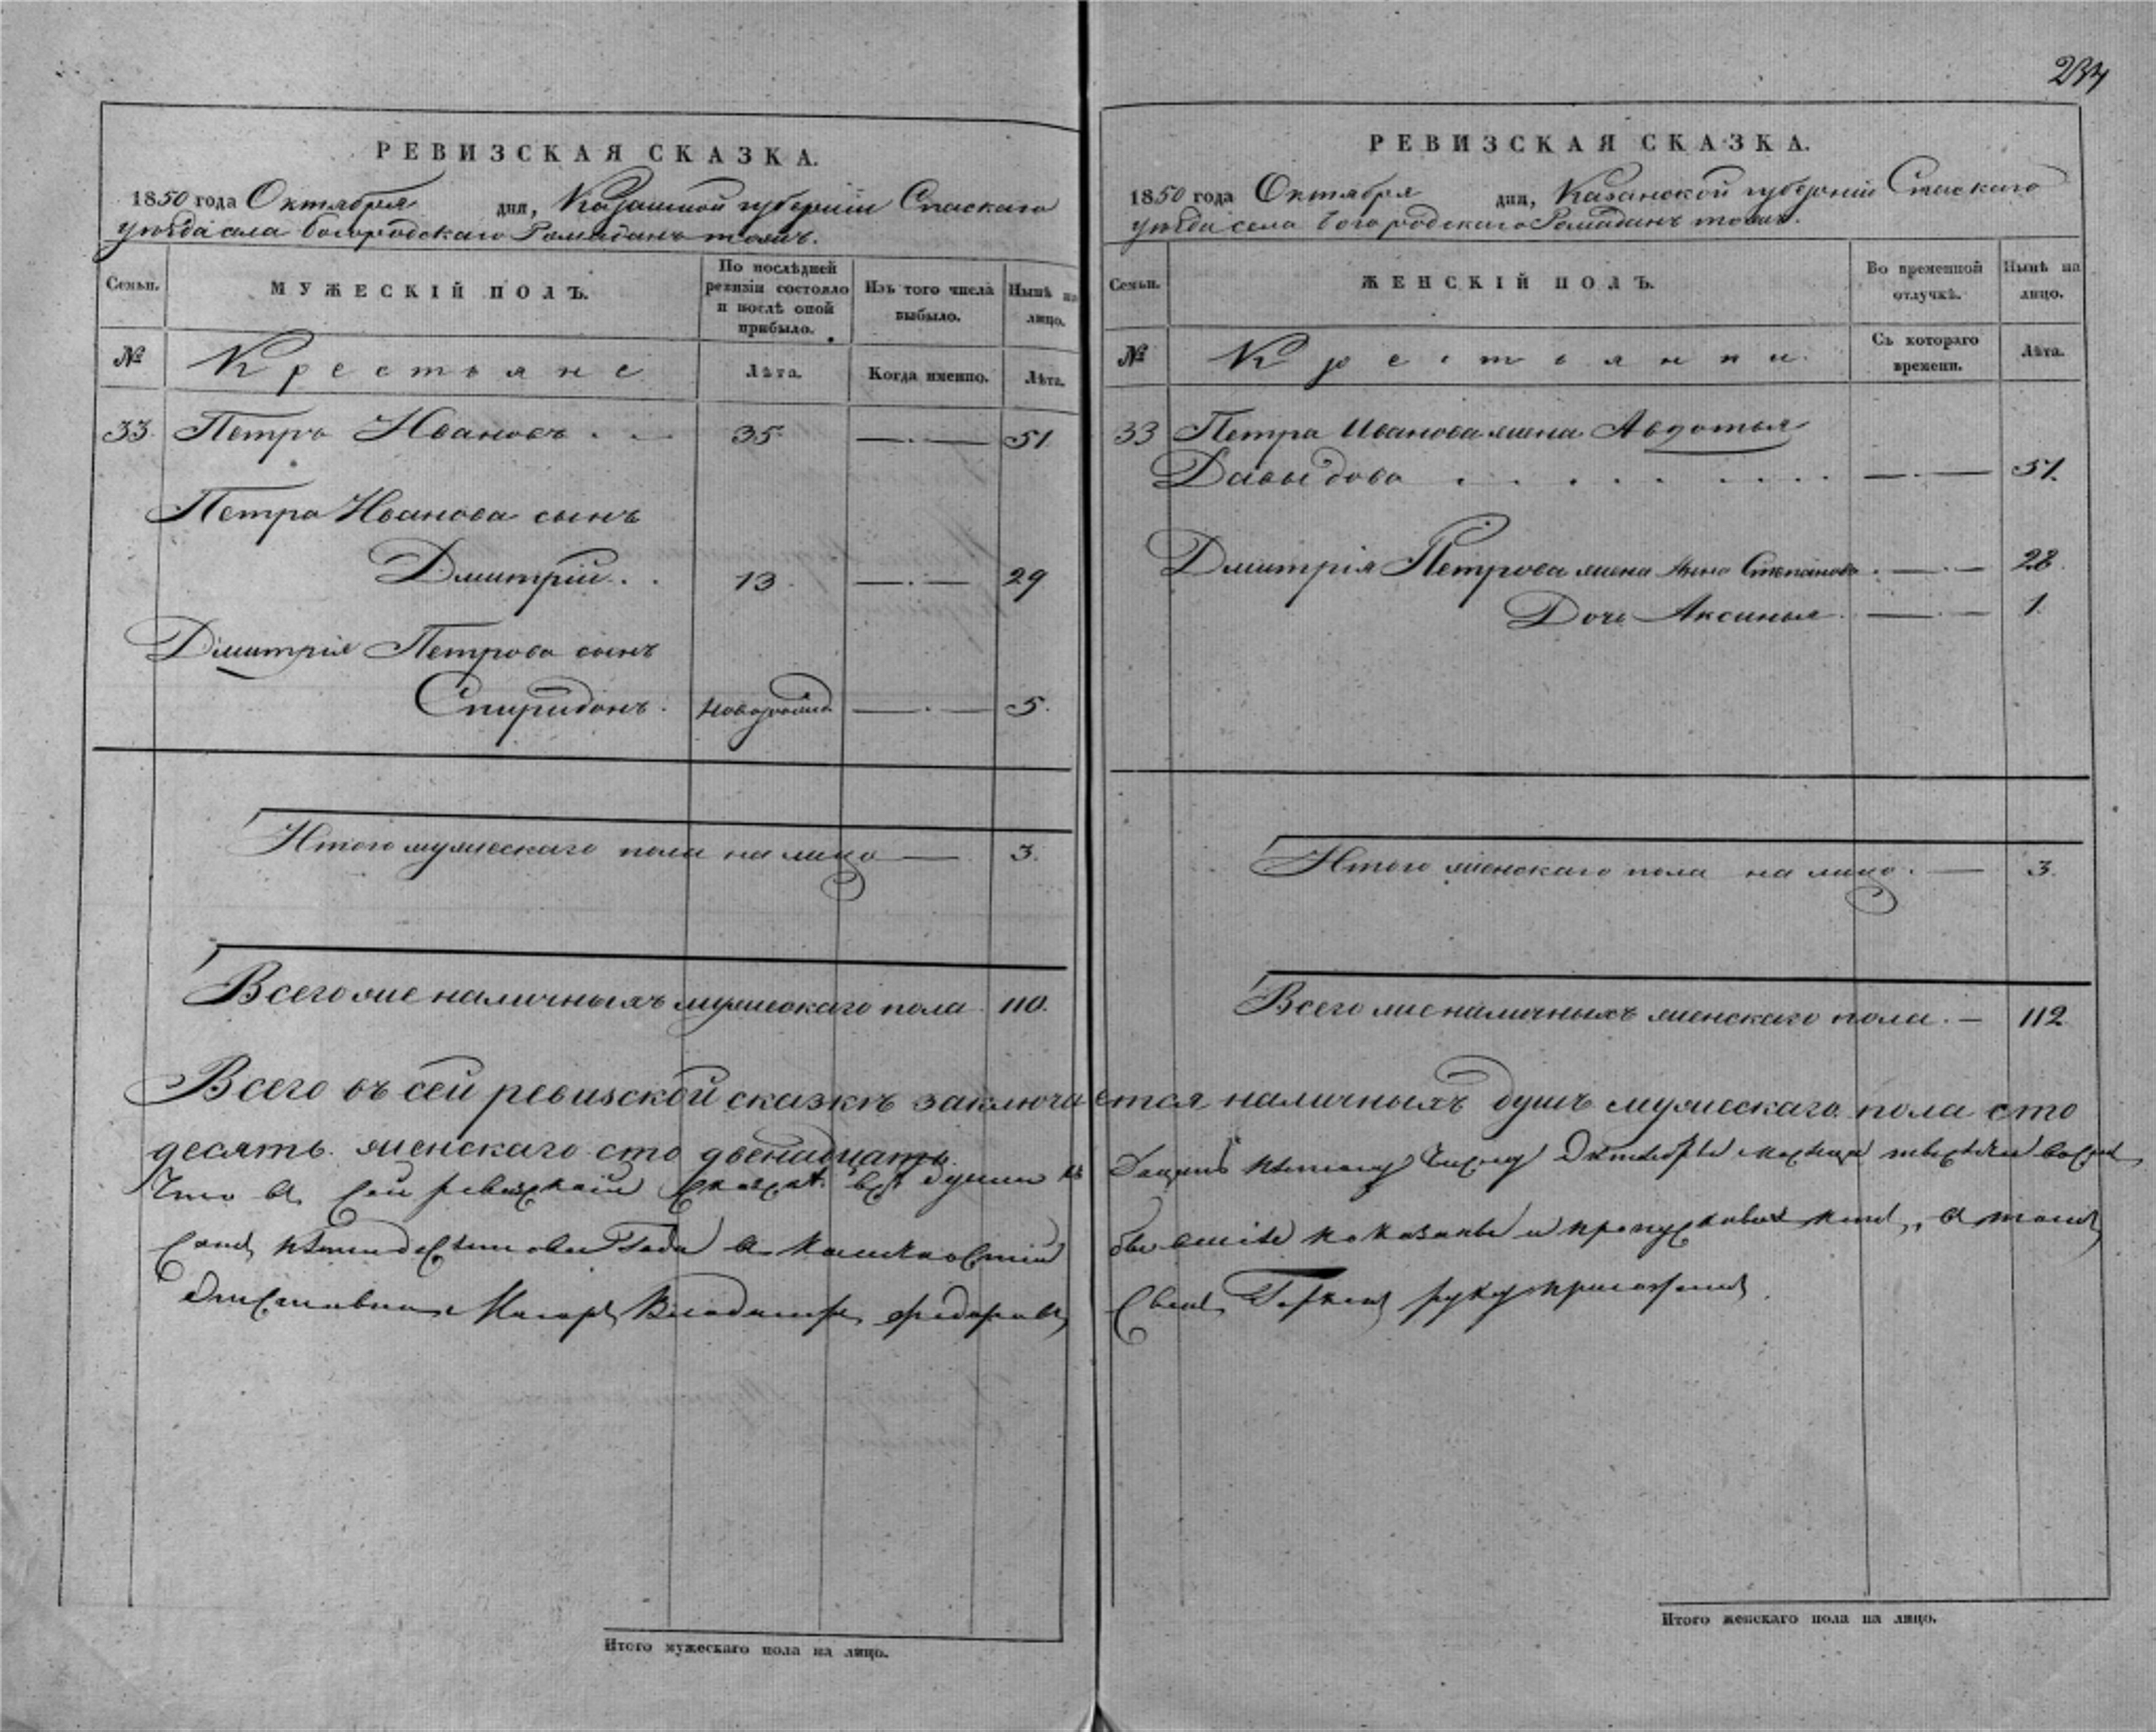 234
РЕВИЗСКАЯ СКАЗКА.
1850 года Октября дня, Казанской губерніи Спаскаго
уѣзда села Богородскаго Рамаданъ тожъ.
Семьи. МУЖЕСКІЙ ПОЛЪ. По послѣдней ревизіи состояло и послѣ оной прибыло. Изъ того числа выбыло. Нынѣ на лицо.
№ Крестьяне Лѣта. Когда именно. Лѣта.
33. Петръ Ивановъ 35 51
Петра Иванова сынъ
Дмитрій 13 29
Дмитрія Петрова сынъ
Спиридонъ. новорожд. 5.
Итого мужескаго пола на лицо 3.
Всего же наличныхъ мужескаго пола 110.
РЕВИЗСКАЯ СКАЗКА.
1850 года Октября дня, Казанской губерніи Спаскаго
уѣзда села Богородскаго Рамаданъ тожъ.
Семьи. ЖЕНСКІЙ ПОЛЪ. Во временной отлучкѣ. Нынѣ на лицо.
№ Крестьянки. Съ котораго времени. Лѣта.
33 Петра Иванова жена Авдотья
Давыдова 51.
Дмитрія Петрова жена Анна Степанова 28.
Дочь Аксинья 1.
Итого женскаго пола на лицо. 3.
Всего же наличныхъ женскаго пола. 112
Всего въ сей ревизской сказкѣ заключается наличныхъ душъ мужескаго пола сто
десять женскаго сто двенадцать.
Что въ сей ревизской сказке все души къ
показаны и пропусковъ нетъ, въ томъ
Маіоръ Владимиръ Федоровъ
руку приложилъ
Итого мужескаго пола на лицо.
Итого женскаго пола на лицо.